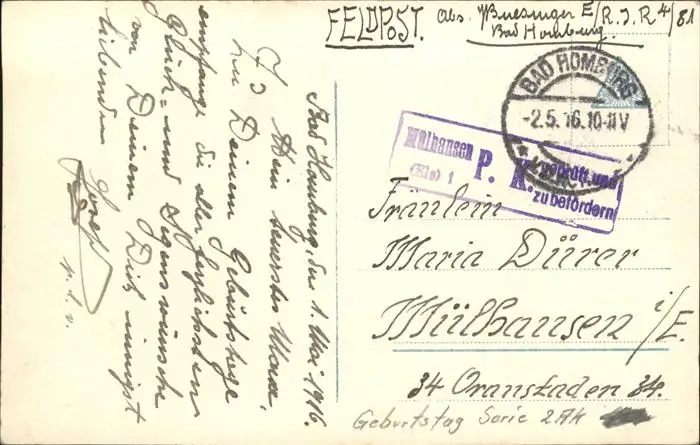 FELDPOST.
Abs. Buesinger E/R.I.R 4/81
Bad Homburg.
BAD HOMBURG
-2.5.16.10-11V
Mülhausen
(Els) 1
P. K.
geprüft und
zu befördern
Fräulein
Maria Dürer
Mülhausen i/E.
34 Oranstaden 34.
Geburtstag Serie 2Mk
Bad Homburg, den 1. Mai 1916.
Mein teuerstes
Zu Deinem Geburtstage
empfange die allerherzlichsten
Glück- und Segenswünsche
von Deinem Dich innigst
liebenden Josef